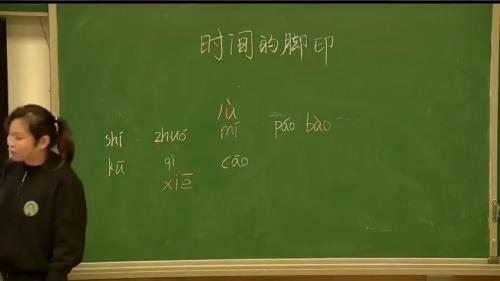 时间的脚印
lù
shí zhuó mí páo bào
kū qì cāo
xiē